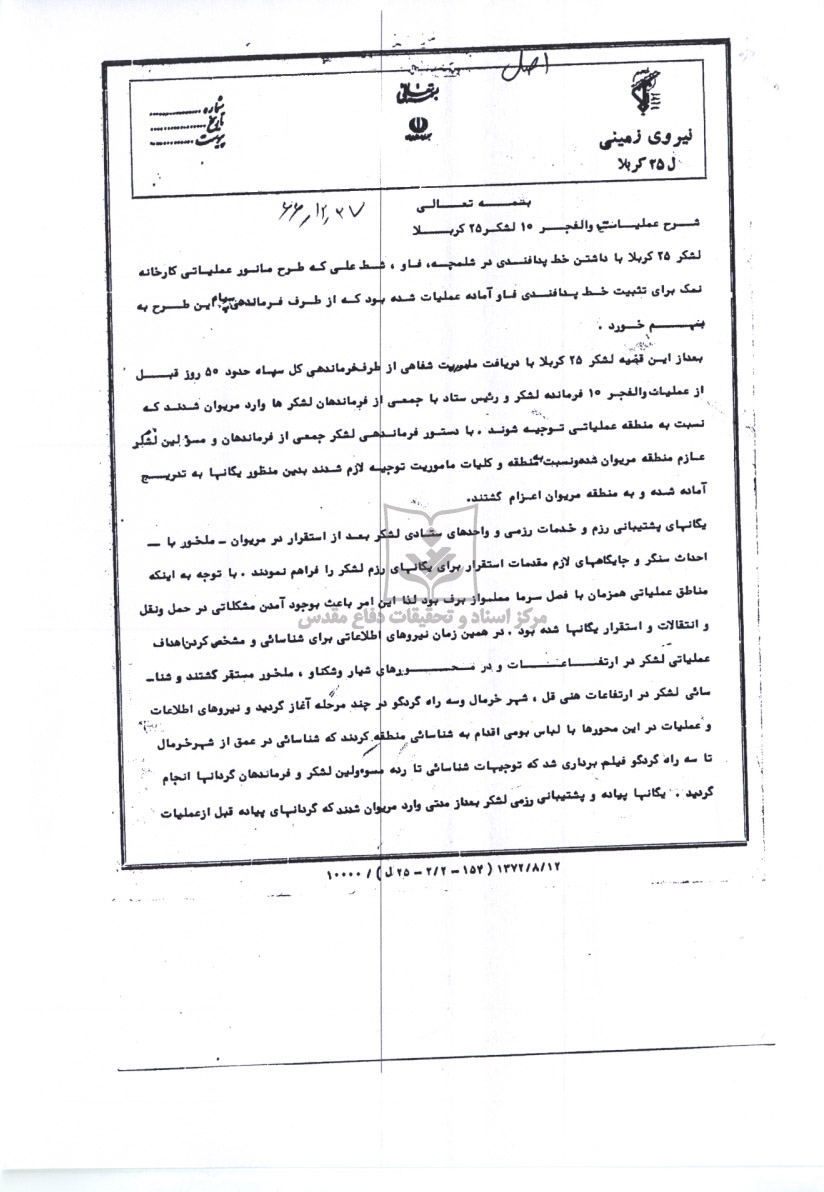 اصل
بسمه تعالی
نیروی زمینی
ل ۲۵ کربلا
شماره
تاریخ
پیوست
بسمه تعالی
شرح عملیات والفجر ۱۰ لشکر ۲۵ کربلا
لشکر ۲۵ کربلا با داشتن خط پدافندی در شلمچه، فاو ، شط علی که طرح مانور عملیاتی کارخانه
نمک برای تثبیت خط پدافندی فاو آماده عملیات شده بود که از طرف فرماندهی سپاه این طرح به
بهم خورد .
بعداز این قضیه لشکر ۲۵ کربلا با دریافت ماموریت شفاهی از طرففرماندهی کل سپاه حدود ۵۰ روز قبل
از عملیات والفجر ۱۰ فرمانده لشکر و رئیس ستاد با جمعی از فرماندهان لشکر ها وارد مریوان شدند که
نسبت به منطقه عملیاتی توجیه شوند . با دستور فرماندهی لشکر جمعی از فرماندهان و مسؤلین لشکر
عازم منطقه مریوان شدهونسبت به منطقه و کلیات ماموریت توجیه لازم شدند بدین منظور یگانها به تدریج
آماده شده و به منطقه مریوان اعزام گشتند.
یگانهای پشتیبانی رزم و خدمات رزمی و واحدهای ستادی لشکر بعد از استقرار در مریوان ـ ملخور با ـ
احداث سنگر و جایگاههای لازم مقدمات استقرار برای یگانهای رزم لشکر را فراهم نمودند . با توجه به اینکه
مناطق عملیاتی همزمان با فصل سرما مملواز برف بود لذا این امر باعث بوجود آمدن مشکلاتی در حمل ونقل
مرکز اسناد و تحقیقات دفاع مقدس
و انتقالات و استقرار یگانها شده بود . در همین زمان نیروهای اطلاعاتی برای شناسائی و مشخص کردن اهداف
عملیاتی لشکر در ارتفاعات و در محورهای شیار وشکناو ، ملخور مستقر گشتند و شنا-
سائی لشکر در ارتفاعات هنی قل ، شهر خرمال وسه راه گردگو در چند مرحله آغاز گردید و نیروهای اطلاعات
و عملیات در این محورها با لباس بومی اقدام به شناسائی منطقه کردند که شناسائی در عمق از شهرخرمال
تا سه راه گردگو فیلم برداری شد که توجیهات شناسائی تا رده مسوولین لشکر و فرماندهان گردانها انجام
گردید . یگانها پیاده و پشتیبانی رزمی لشکر بعداز مدتی وارد مریوان شدند که گردانهای پیاده قبل ازعملیات
۱۳۷۲/۸/۱۲ ( ۱۵۴ – ۲/۲ – ۲۵ ل ) / ۱۰۰۰۰